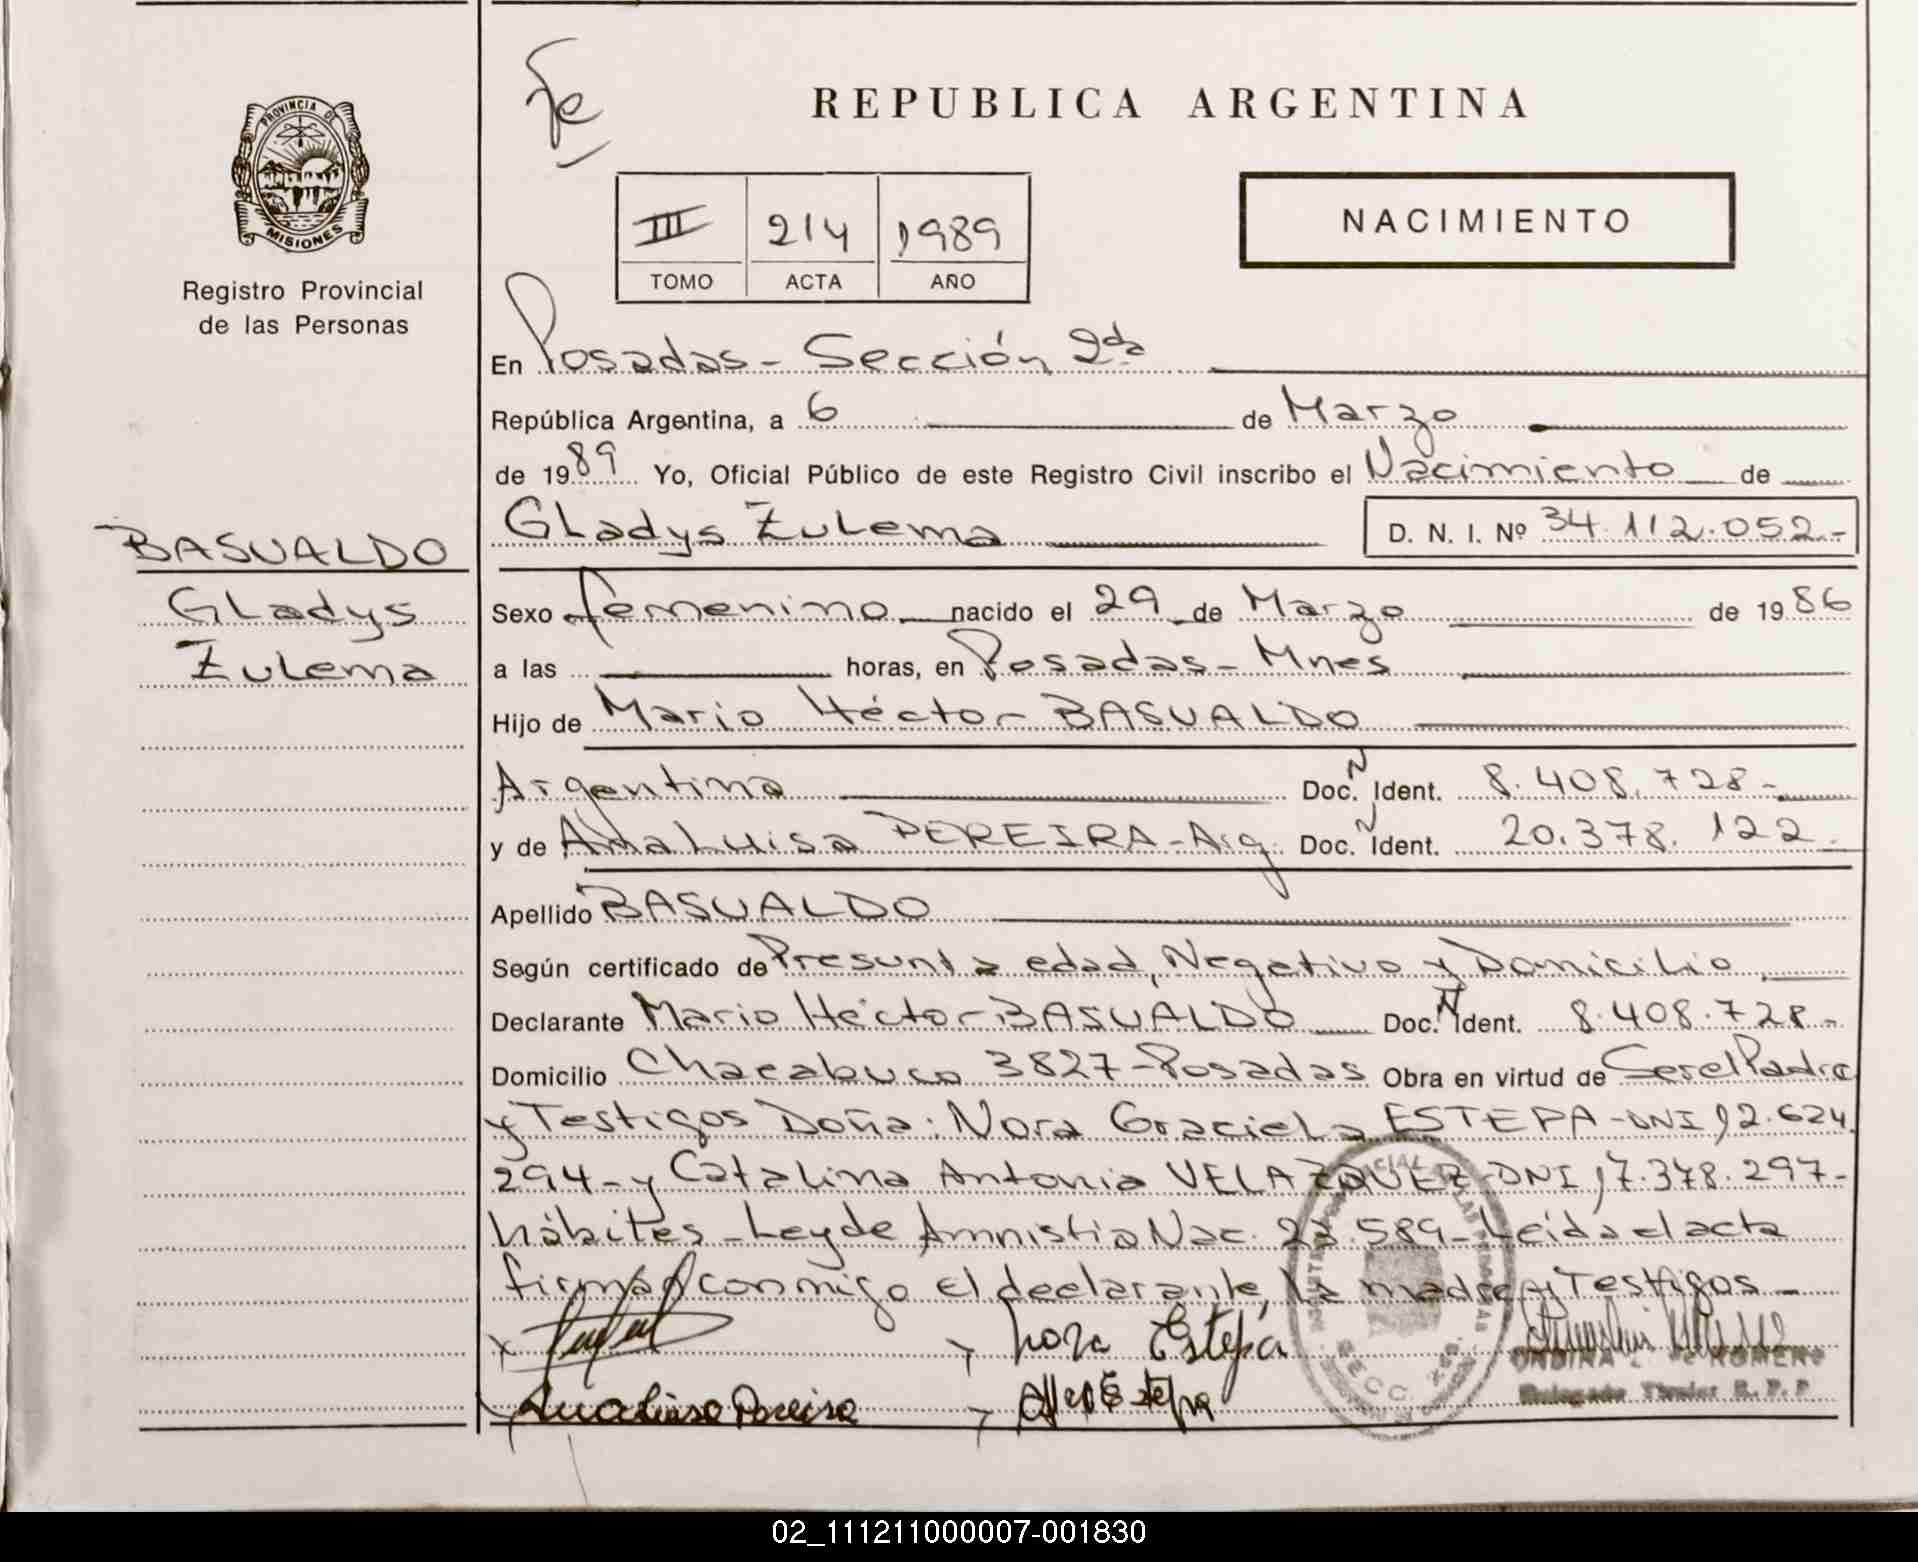 Fe
REPUBLICA ARGENTINA
PROVINCIA DE
MISIONES
Registro Provincial
de las Personas
III 214 1989
TOMO ACTA AÑO
NACIMIENTO
En Posadas - Sección 2da
República Argentina, a 6 de Marzo
de 1989 Yo, Oficial Público de este Registro Civil inscribo el Nacimiento de
Gladys Zulema D. N. I. Nº 34.112.052.-
BASUALDO
Gladys
Zulema
Sexo femenino nacido el 29 de Marzo de 1986
a las horas, en Posadas - Mnes
Hijo de Mario Héctor BASUALDO
Argentina Doc. N Ident. 8.408.728-
y de Ana Luisa PEREIRA - Arg. Doc. N Ident. 20.378.122-
Apellido BASUALDO
Según certificado de Presunta edad, Negativo y Domicilio
Declarante Mario Héctor BASUALDO Doc. N Ident. 8.408.728-
Domicilio Chacabuco 3827 - Posadas Obra en virtud de Ser el Padre
y Testigos Doña: Nora Graciela ESTEPA - DNI 12.624.
294 - y Catalina Antonia VELAZQUEZ - DNI 17.378.297-
hábiles - Ley de Amnistia Nac. 23.589 - Leída el acta
firman conmigo el declarante, la madre y Testigos -
Nora Estepa
Ana Luisa Pereira
SECC. 2da.
ONDINA ROMERO
Delegado Titular R. P. P.
02_111211000007-001830